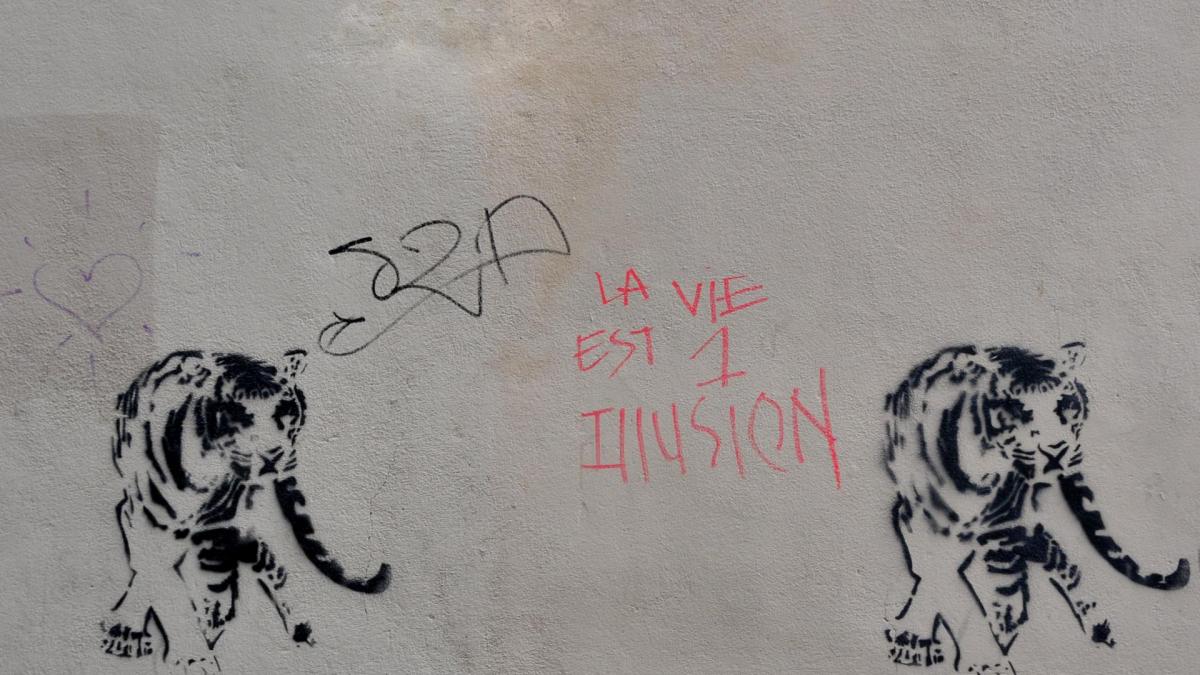 LA VIE
EST 1
ILLUSION